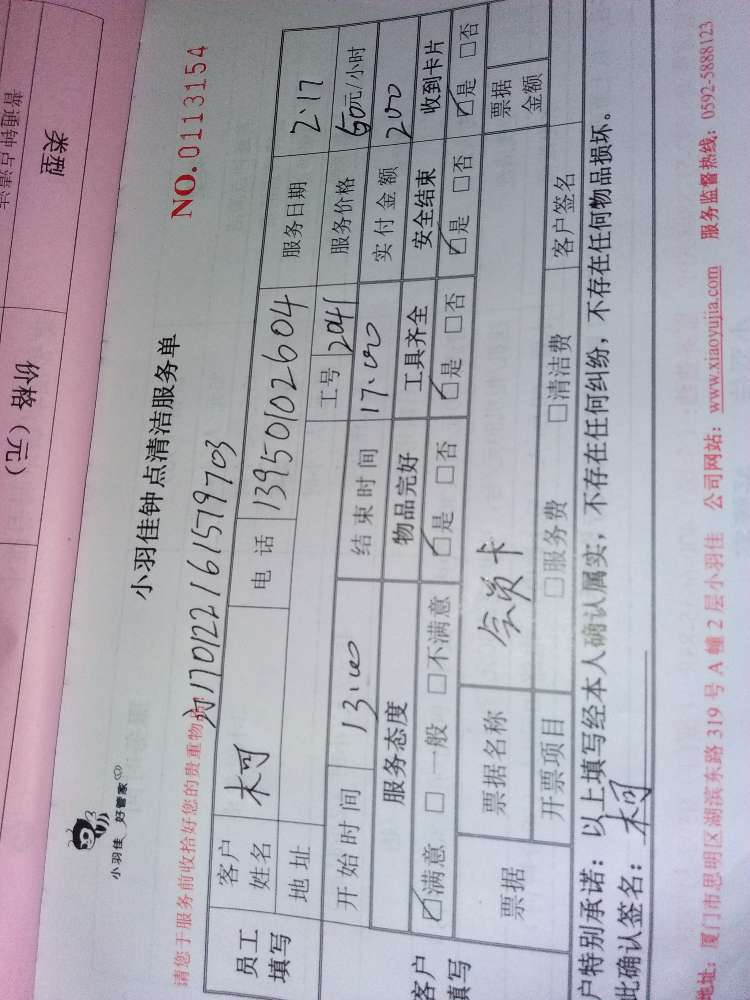 类型
价格（元）
普通钟点清洁
小羽佳 好管家
小羽佳钟点清洁服务单
NO. 0113154
请您于服务前收拾好您的贵重物品!
170122161579703
员工填写
客户姓名 木可 电话 13950102604 服务日期 2.17
地址 工号 2041 服务价格 50元/小时
开始时间 13:00 结束时间 17:00 实付金额 200
客户填写
服务态度 物品完好 工具齐全 安全结束 收到卡片
☑满意 □一般 □不满意 ☑是 □否 ☑是 □否 ☑是 □否 ☑是 □否
票据 票据名称 会员卡 票据金额
开票项目 □服务费 □清洁费 客户签名
户特别承诺：以上填写经本人确认属实，不存在任何纠纷，不存在任何物品损坏。
此确认签名：木可
地址：厦门市思明区湖滨东路319号A幢2层小羽佳 公司网站：www.xiaoyujia.com 服务监督热线：0592-5888123